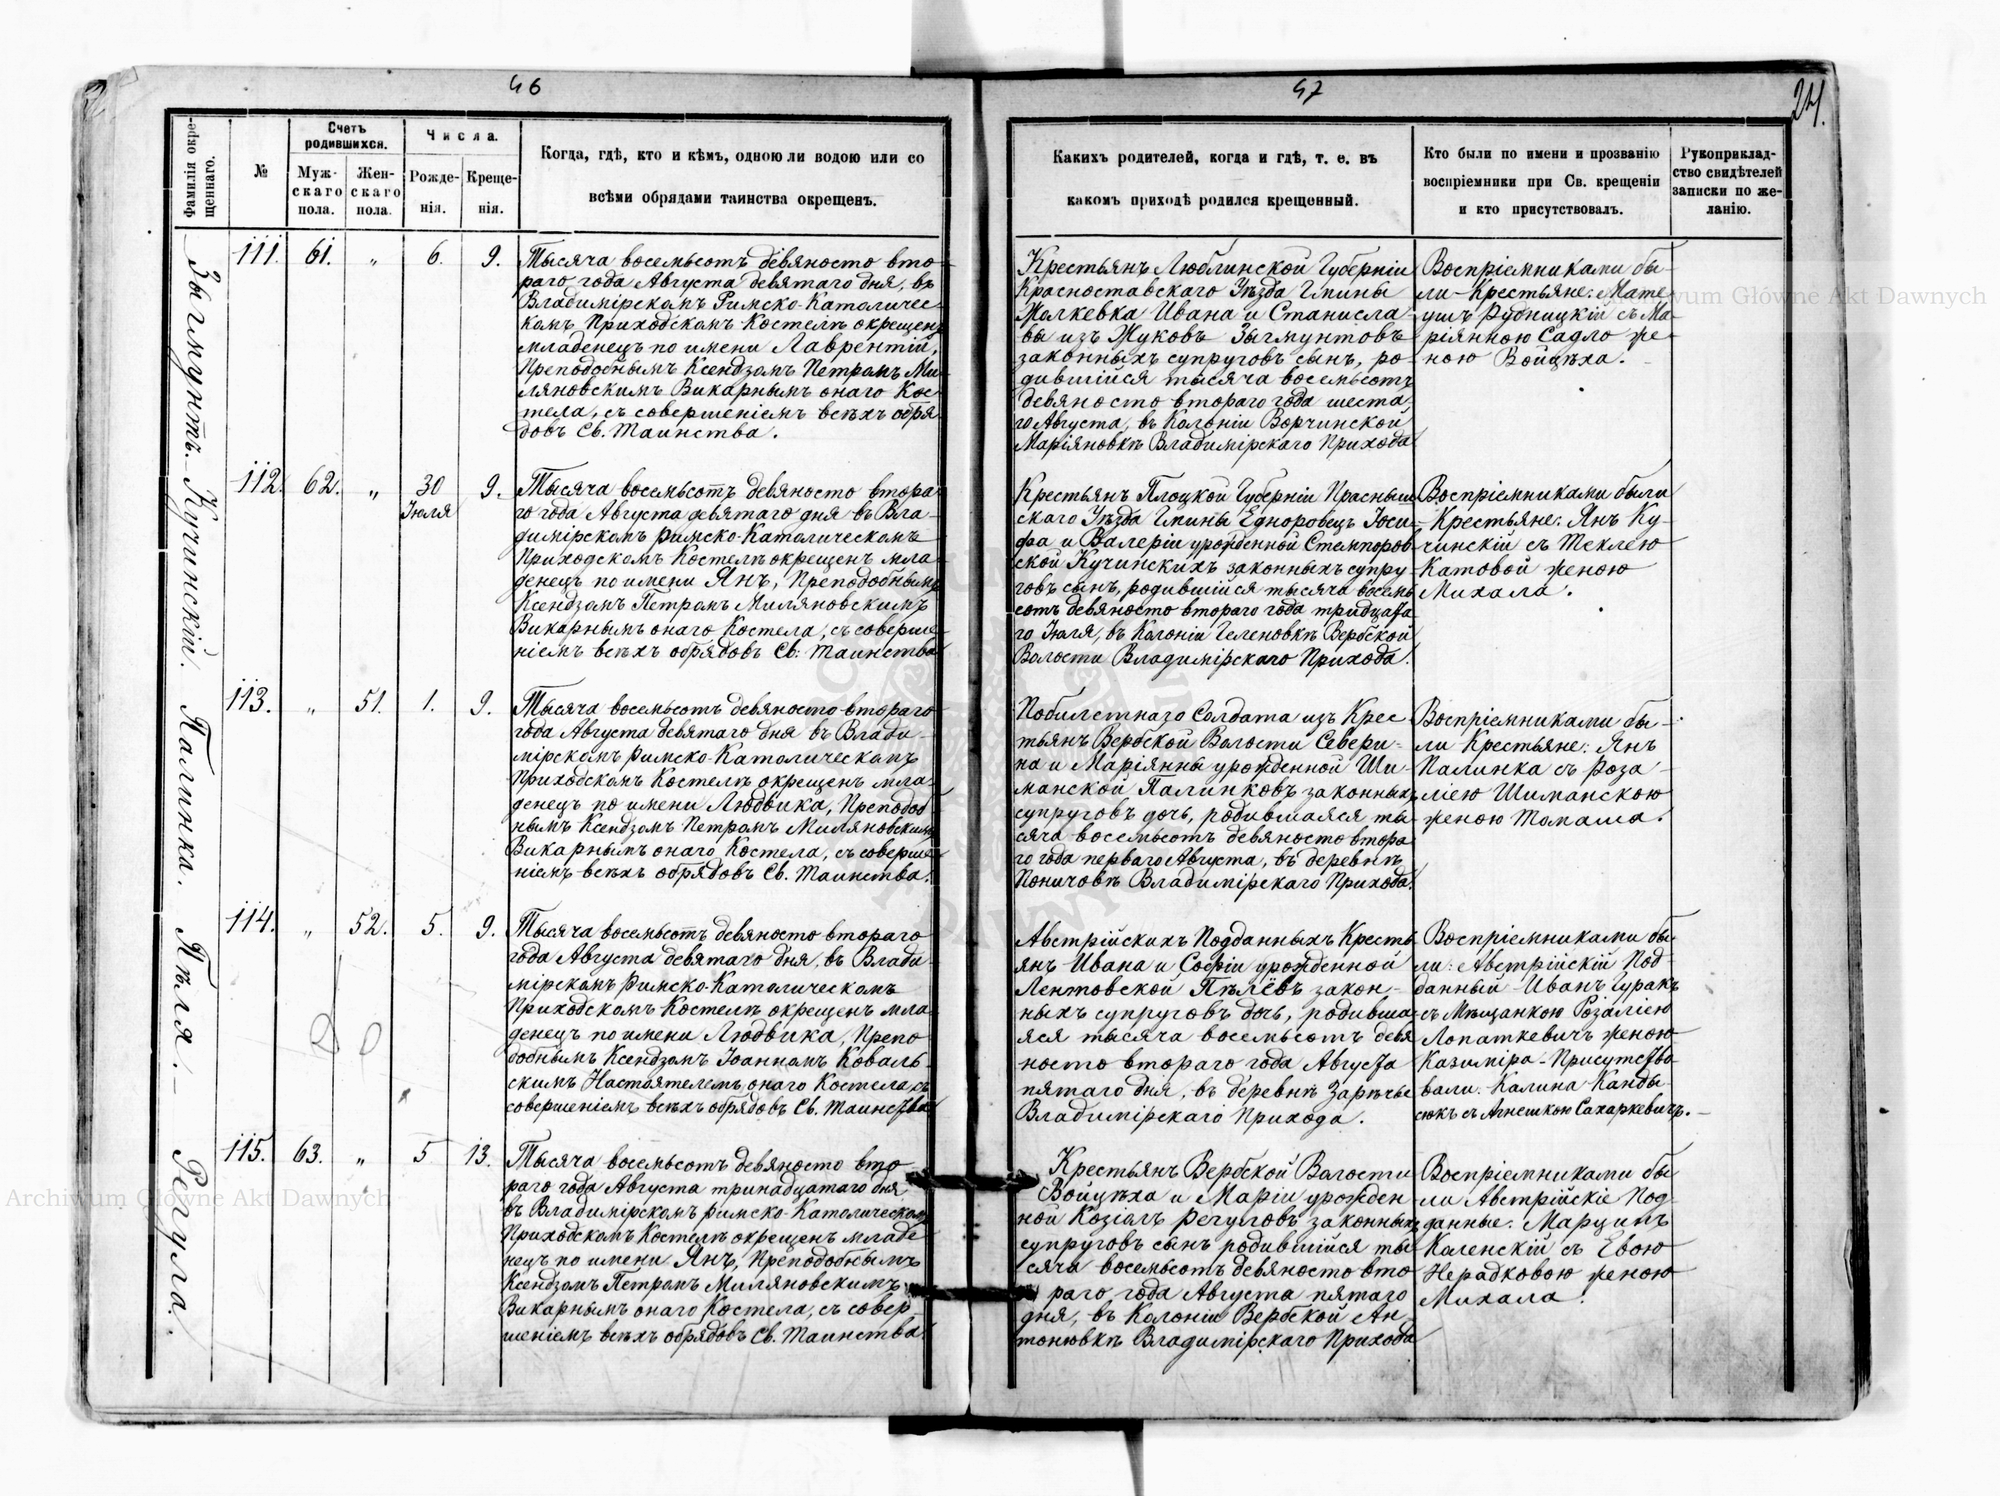 46
Фамилія окре-
щеннаго.
№
Счетъ
родившихся.
Муж-
скаго
пола.
Жен-
скаго
пола.
Числа.
Рожде-
нія.
Креще-
нія.
Когда, гдѣ, кто и кѣмъ, одною ли водою или со
всѣми обрядами таинства окрещенъ.
Зыгмунтъ.
111.
61.
„
6.
9.
Тысяча восемьсотъ девяносто вто-
раго года Августа девятаго дня, въ
Владимірскомъ Римско-Католичес-
комъ Приходскомъ Костелѣ окрещенъ
младенецъ по имени Лаврентій,
Преподобнымъ Ксендзомъ Петромъ Ми-
ляновскимъ Викарнымъ онаго Кос-
тела, съ совершеніемъ всѣхъ обря-
довъ Св. Таинства.
Кучинскій.
112.
62.
„
30
Іюля
9.
Тысяча восемьсотъ девяносто втора-
го года Августа девятаго дня въ Вла-
димірскомъ Римско-Католическомъ
Приходскомъ Костелѣ окрещенъ мла-
денецъ по имени Янъ, Преподобнымъ
Ксендзомъ Петромъ Миляновскимъ
Викарнымъ онаго Костела, съ соверше-
ніемъ всѣхъ обрядовъ Св. Таинства
Палинка.
113.
„
51.
1.
9.
Тысяча восемьсотъ девяносто втораго
года Августа девятаго дня въ Влади-
мірскомъ Римско-Католическомъ
Приходскомъ Костелѣ окрещенъ мла-
денецъ по имени Людвика, Преподоб-
нымъ Ксендзомъ Петромъ Миляновскимъ
Викарнымъ онаго Костела, съ соверше-
ніемъ всѣхъ обрядовъ Св. Таинства.
Пѣля.
114.
„
52.
5.
9.
Тысяча восемьсотъ девяносто втораго
года Августа девятаго дня, въ Влади-
мірскомъ Римско-Католическомъ
Приходскомъ Костелѣ окрещенъ мла-
денецъ по имени Людвика, Препо-
добнымъ Ксендзомъ Іоанномъ Коваль-
скимъ Настоятелемъ онаго Костела, съ
совершеніемъ всѣхъ обрядовъ Св. Таинства
Регула.
115.
63.
„
5
13.
Тысяча восемьсотъ девяносто вто-
раго года Августа тринадцатаго дня
въ Владимірскомъ Римско-Католическомъ
Приходскомъ Костелѣ окрещенъ младе-
нецъ по имени Янъ, Преподобнымъ
Ксендзомъ Петромъ Миляновскимъ
Викарнымъ онаго Костела, съ совер-
шеніемъ всѣхъ обрядовъ Св. Таинства.
47
24.
Какихъ родителей, когда и гдѣ, т. е. въ
какомъ приходѣ родился крещенный.
Кто были по имени и прозванію
воспріемники при Св. крещеніи
и кто присутствовалъ.
Рукоприклад-
ство свидѣтелей
записки по же-
ланію.
Крестьянъ Люблинской Губерніи
Красноставскаго Уѣзда Гмины
Жолкевка Ивана и Станисла-
вы изъ Жуковъ Зыгмунтовъ
законныхъ супруговъ сынъ, ро-
дившійся тысяча восемьсотъ
девяносто втораго года шеста-
го Августа, въ Колоніи Ворчинской
Маріяновкѣ Владимірскаго Прихода
Воспріемниками бы-
ли Крестьяне: Мате-
ушъ Рудницкій съ Ма-
ріянною Садло же-
ною Войцѣха.
Крестьянъ Плоцкой Губерніи Прасныш-
скаго Уѣзда Гмины Едноровецъ Іоси-
фа и Валеріи урожденной Стемпоров-
ской Кучинскихъ законныхъ супру-
говъ сынъ, родившійся тысяча восемь-
сотъ девяносто втораго года тридцата-
го Іюля, въ Колоніи Геленовкѣ Вербской
Волости Владимірскаго Прихода.
Воспріемниками были
Крестьяне: Янъ Ку-
чинскій съ Теклею
Катовой женою
Михала.
Побилетнаго Солдата изъ Крес-
тьянъ Вербской Волости Севери-
на и Маріянны урожденной Ши-
манской Палинковъ законныхъ
супруговъ дочь, родившаяся ты-
сяча восемьсотъ девяносто втора-
го года перваго Августа, въ деревнѣ
Поничовѣ Владимірскаго Прихода.
Воспріемниками бы-
ли Крестьяне: Янъ
Палинка съ Роза-
ліею Шиманскою
женою Томаша.
Австрійскихъ Подданныхъ Кресть-
янъ Ивана и Софіи урожденной
Лентовской Пѣлёвъ закон-
ныхъ супруговъ дочь, родивша-
яся тысяча восемьсотъ девя-
носто втораго года Августа
пятаго дня, въ деревнѣ Зарѣчье
Владимірскаго Прихода.
Воспріемниками бы-
ли: Австрійскій Под-
данный Иванъ Гуракъ
съ Мѣщанкою Розаліею
Лопаткевичъ женою
Казиміра. Присутство-
вали: Калина Канды-
сюкъ съ Агнешкою Сахаркевичъ.
Крестьянъ Вербской Волости
Войцѣха и Маріи урожден-
ной Козіолъ Регуловъ законныхъ
супруговъ сынъ родившійся ты-
сяча восемьсотъ девяносто вто-
раго года Августа пятаго
дня, въ Колоніи Вербской Ан-
тоновкѣ Владимірскаго Прихода
Воспріемниками бы-
ли Австрійскіе Под-
данные: Марцинъ
Каленскій съ Евою
Нерадковою женою
Михала.
Archiwum Główne Akt Dawnych
Archiwum Główne Akt Dawnych